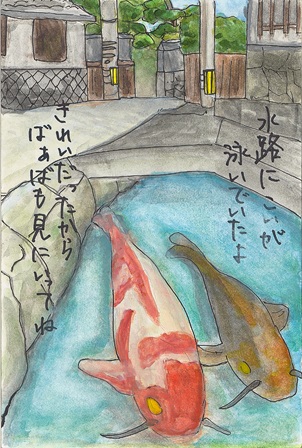 水路にこいが
泳いでいたよ
きれいだったから
ばぁばも見にいってね